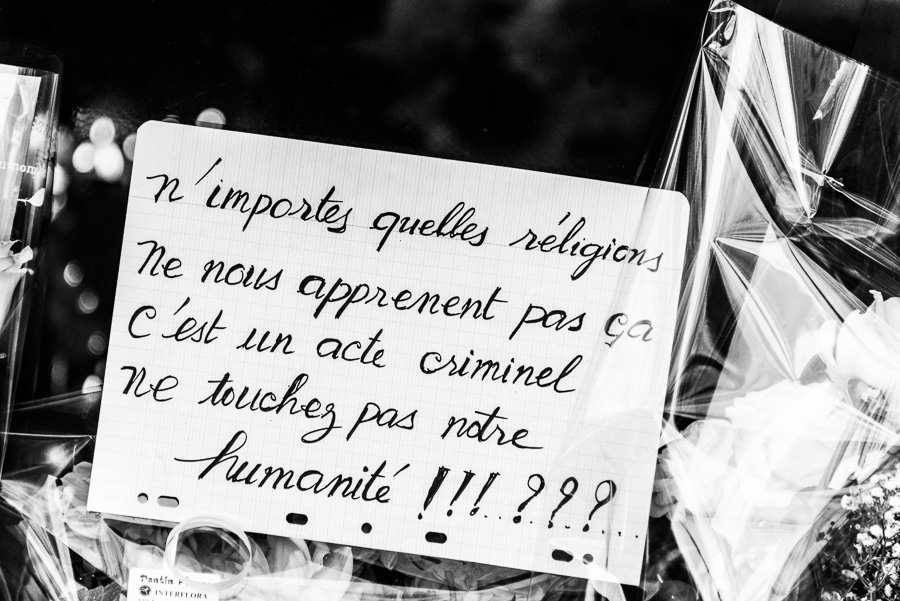 n'importes quelles réligions
Ne nous apprenent pas ça
C'est un acte criminel
Ne touchez pas notre
humanité !!!...???...
INTERFLORA